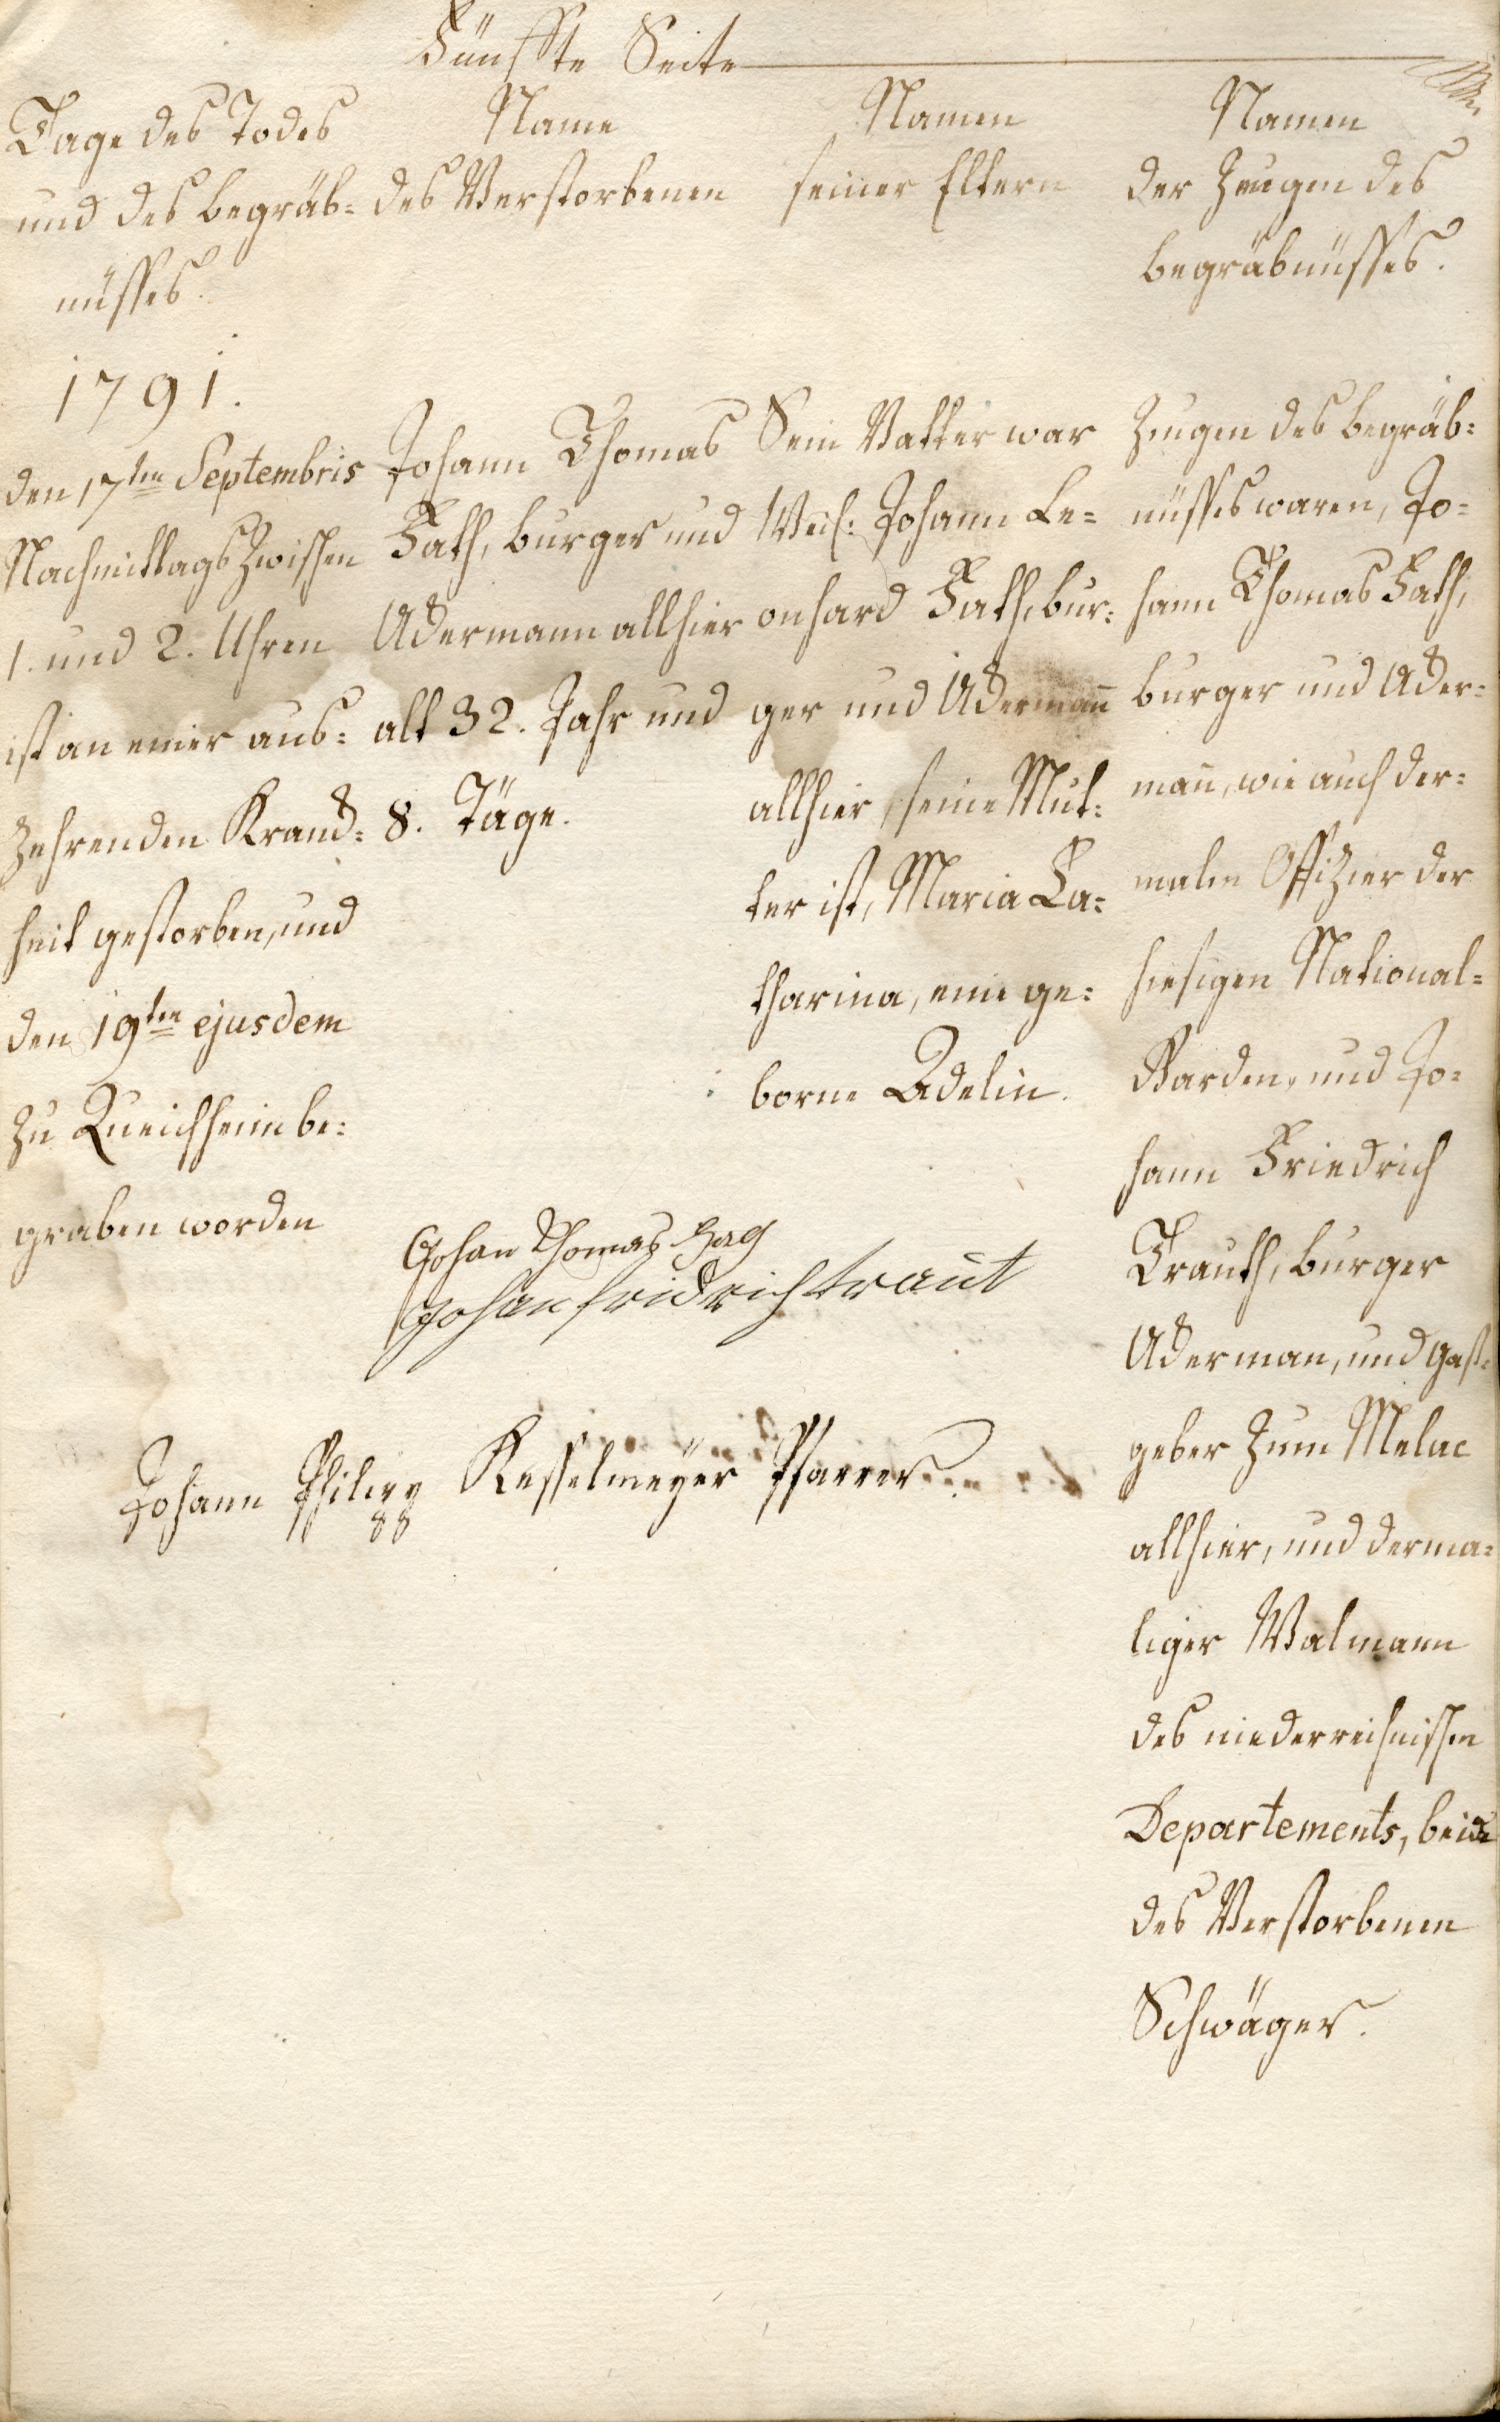 Fünffte Seite
Tage des Todes
und des begräb=
nüsses.
Name
des Verstorbenen
Namen
seiner Eltern
Namen
der Zeugen des
begräbnüsses.
1791.
den 17ten Septembris
Nachmittags zwischen
1. und 2. Uhren
ist an einer aus=
zehrenden Kranck=
heit gestorben, und
den 19ten ejusdem
zu Queichheim be=
graben worden
Johann Thomas
Fath, burger und
Ackermann allhier
alt 32. Jahr und
8. Täge.
Sein Vatter war
Weil: Johann Le=
onhard Fath, bur=
ger und Ackermann
allhier, seine Mut=
ter ist, Maria Ca=
tharina, eine ge=
borne Adelin.
Zeugen des begräb=
nüsses waren, Jo=
hann Thomas Fath,
burger und Acker=
mann, wie auch der=
malen Offizier der
hiesigen National=
Garden, und Jo=
hann Friedrich
Trauth, burger
Ackerman, und gast=
geber zum Melac
allhier, und derma=
liger Walmann
des niederreihnischen
Departements, beide
des Verstorbenen
Schwäger.
Johan Thomas
Johan fridrich traut
Johann Philipp Kesselmeyer Pfarrer.